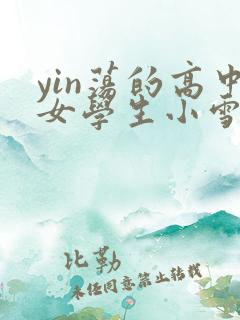 yin蕩的高中
女學生小雪
比勒
未经同意禁止转载